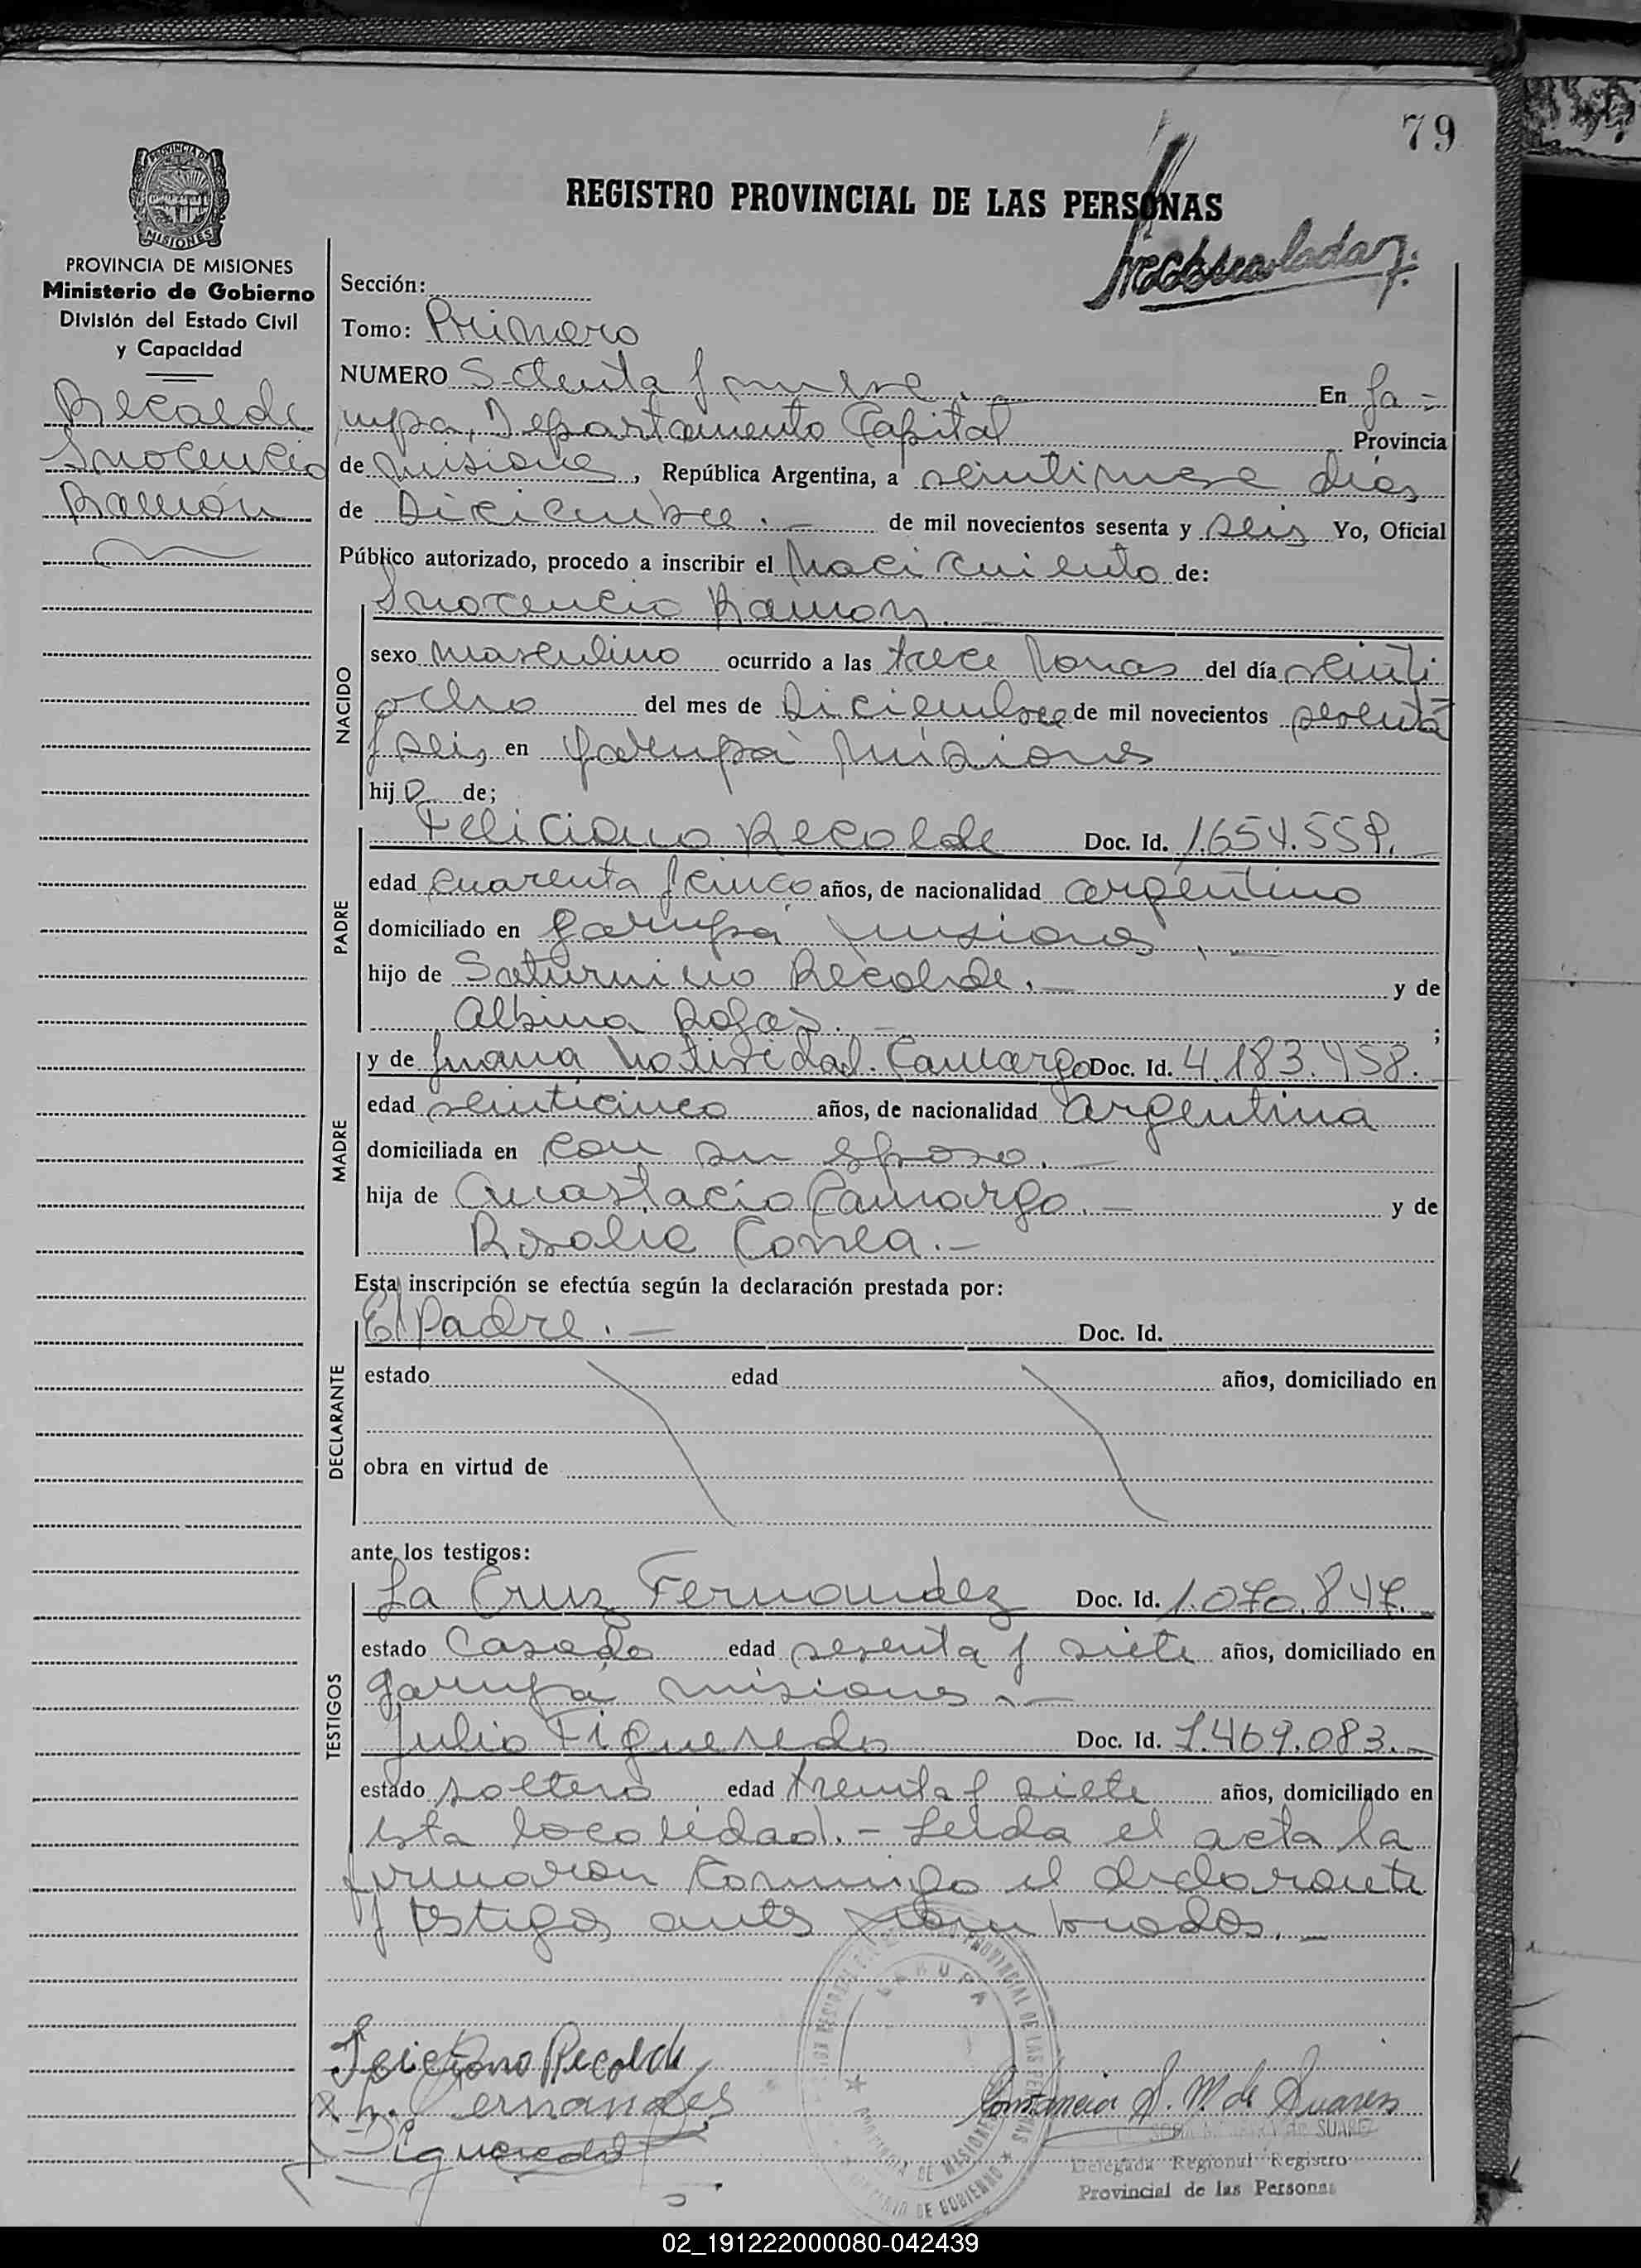 79
REGISTRO PROVINCIAL DE LAS PERSONAS
PROVINCIA DE
MISIONES
PROVINCIA DE MISIONES
Ministerio de Gobierno
División del Estado Civil
y Capacidad
Recalde
Inocencio
Ramón
Sección:
Tomo: Primero
NUMERO Setenta y nueve. En Ga-
rupa, Departamento Capital Provincia
de Misiones, República Argentina, a veintinueve días
de Diciembre.- de mil novecientos sesenta y seis Yo, Oficial
Público autorizado, procedo a inscribir el Nacimiento de:
Inocencio Ramon.-
NACIDO
sexo masculino ocurrido a las trece horas del día veinti
ocho del mes de Diciembre de mil novecientos sesenta
y seis, en Garupá Misiones
hijo de;
Feliciano Recalde Doc. Id. 1.654.559.-
PADRE
edad cuarenta y cinco años, de nacionalidad argentino
domiciliado en Garupá Misiones.-
hijo de Saturnino Recalde.- y de
Albina Rojas.- ;
MADRE
y de Juana Natividad Camargo Doc. Id. 4.183.458.
edad veinticinco años, de nacionalidad Argentina
domiciliada en con su esposo.-
hija de Anastacio Camargo.- y de
Rosalia Correa.-
Esta inscripción se efectúa según la declaración prestada por:
El Padre.- Doc. Id.
DECLARANTE
estado edad años, domiciliado en
obra en virtud de
ante los testigos:
La Cruz Fernandez Doc. Id. 1.070.847.-
TESTIGOS
estado Casado edad sesenta y siete años, domiciliado en
Garupá Misiones.-
Julio Figueredo Doc. Id. 7.469.083.-
estado soltero edad treinta y siete años, domiciliado en
esta localidad.- Leida el acta la
firmaron conmigo el declarante
y testigos antes nombrados.-
Feliciano Recalde
Fernandes
Figueredo
GARUPA
PROVINCIAL DE LAS PERSONAS
PROVINCIA DE MISIONES
MINISTERIO DE GOBIERNO
Constancia S. M de Suarez
DE SUAREZ
Delegada Regional Registro
Provincial de las Personas
02_191222000080-042439